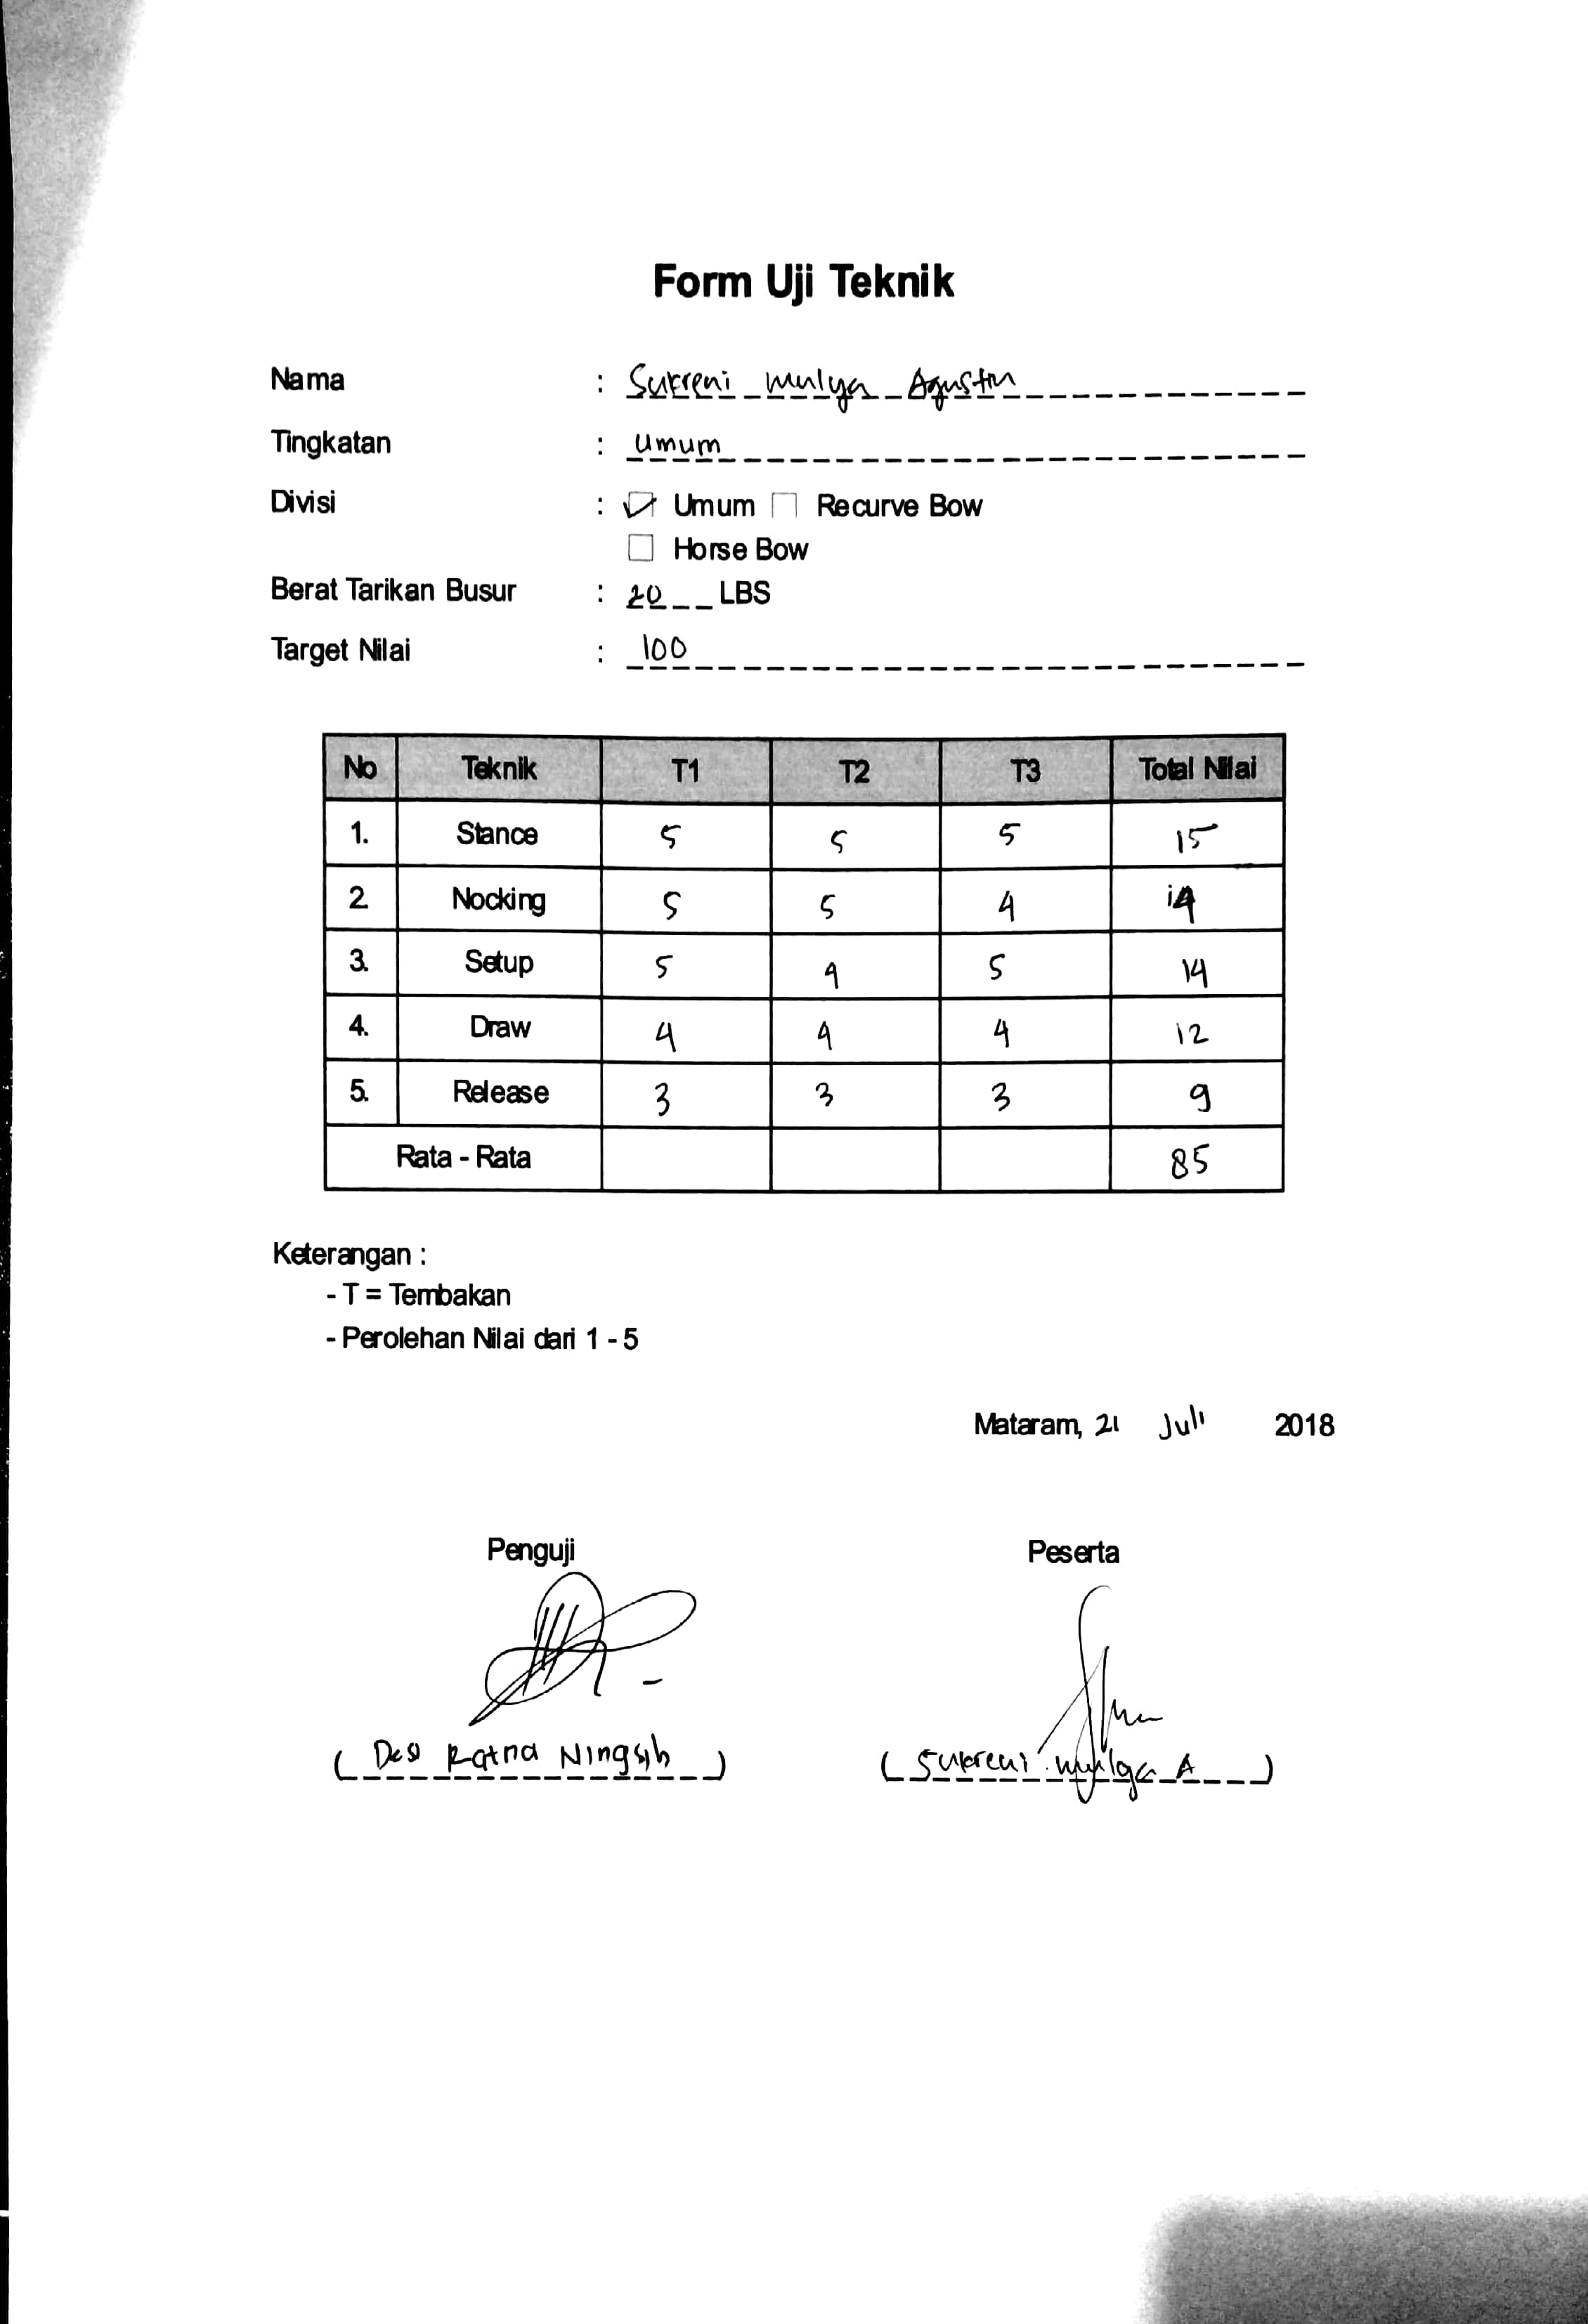 Form Uji Teknik
Nama : Sukreni Mulya Agustin
Tingkatan : Umum
Divisi : Umum Recurve Bow
Horse Bow
Berat Tarikan Busur : 20 LBS
Target Nilai : 100
No Teknik T1 T2 T3 Total Nilai
1. Stance 5 5 5 15
2 Nocking 5 5 4 14
3. Setup 5 4 5 14
4. Draw 4 4 4 12
5. Release 3 3 3 9
Rata - Rata 85
Keterangan :
- T = Tembakan
- Perolehan Nilai dari 1 - 5
Mataram, 21 Juli 2018
Penguji Peserta
( Desi Ratna Ningsih ) ( Sukreni Mulya A )